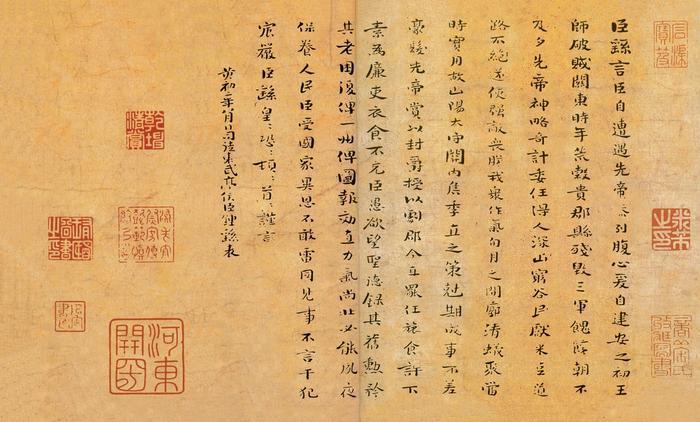 臣繇言臣自遭遇先帝忝列腹心爰自建安之初王
師破賊關東時年荒穀貴郡縣殘毀三軍餽饟朝不
及夕先帝神略奇計委任得人深山窮谷民獻米豆道
路不絕遂使強敵喪膽我眾作氣旬月之間廓清蟻聚當
時實用故山陽太守關內侯季直之策剋期成事不差
豪髮先帝賞以封爵授以劇郡今直罷任旅食許下
素為廉吏衣食不充臣愚欲望聖德錄其舊勳矜
其老困復俾一州俾圖報效直力氣尚壯必能夙夜
保養人民臣受國家異恩不敢雷同見事不言干犯
宸嚴臣繇皇〻恐〻頓〻首〻謹言
黃初二年八月日司徒東武亭侯臣鍾繇表